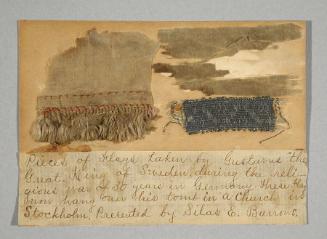 Pieces of Flags taken by Gustavus "the
Great" King of Sweden, during the reli-
gious war of 30 years in Germany. These Flags
now hang over his tomb in a Church in
Stockholm, Presented by Silas E. Burrows.